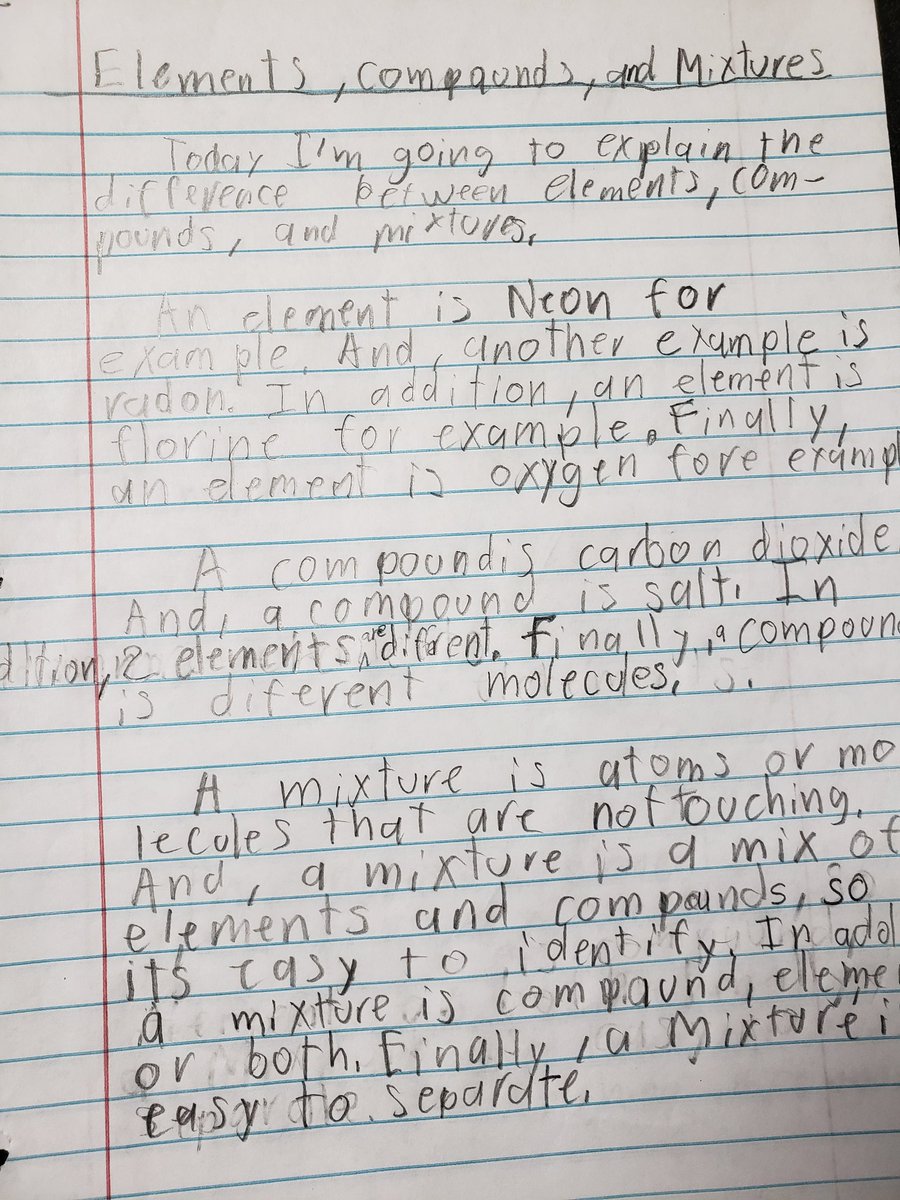 Elements, Compaunds, and Mixtures
Today I'm going to explain the
difference between elements, com-
pounds, and mixtures.
An element is Neon for
example. And, another example is
radon. In addition, an element is
florine for example. Finally,
an element is oxygen fore examp
A compound is carbon dioxide
And, a compound is salt. In
dition, 2 elements are diffrent. Finally, a compoun
is diferent molecules.
A mixture is atoms or mo
lecules that are not touching.
And, a mixture is a mix of
elements and compounds, so
its easy to identify. In add
a mixture is compaund, eleme
or both. Finally, a Mixture i
easy to separate.